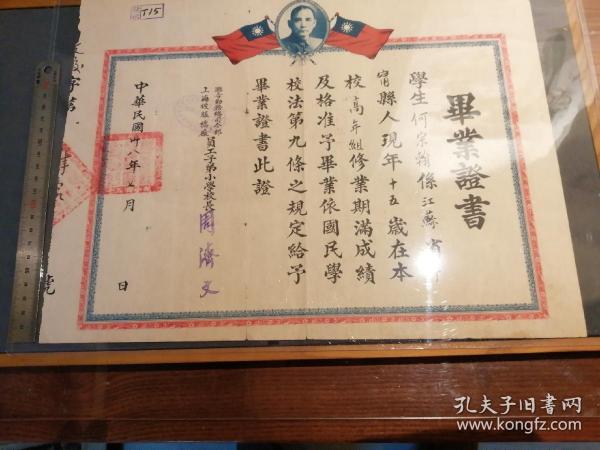 T15
畢業證書
學生何宗翰係江蘇省
縣人現年十五歲在本
校高年組修業期滿成績
及格准予畢業依國民學
校法第九條之規定給予
畢業證書此證
聯合勤務總司令部
上海被服總廠
員工子弟小學校長周濟文
中華民國卅八年 月 日
孔夫子旧书网
www.kongfz.com